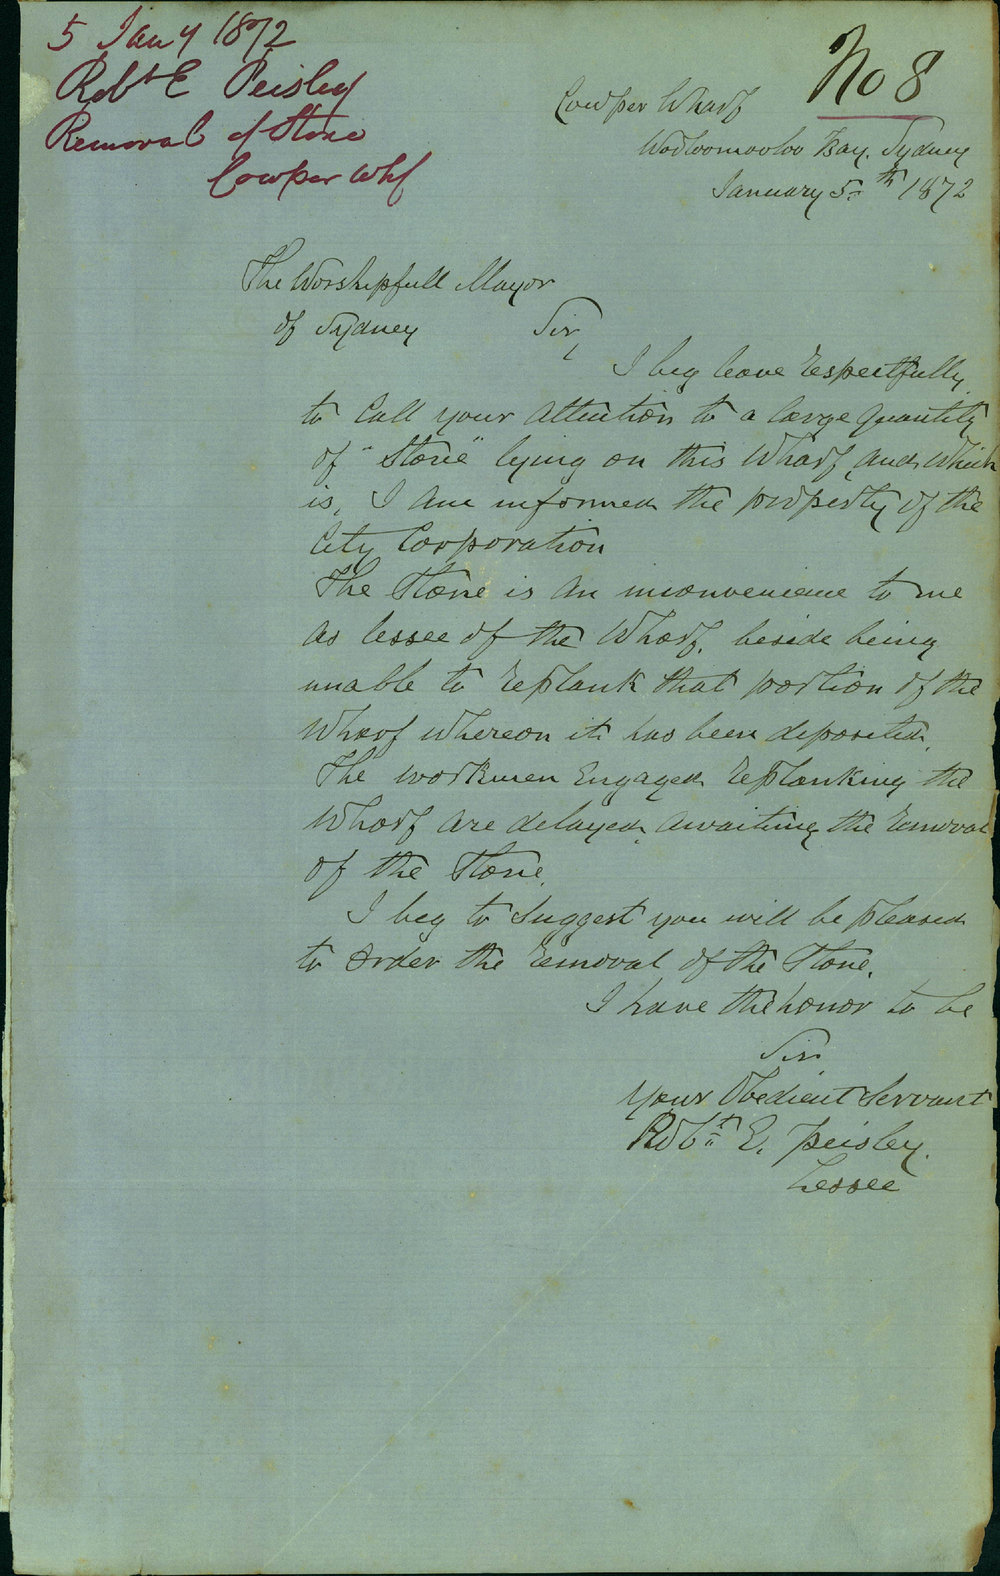 5 Jany 1872
Robt E Peisley
Removal of Stone
Cowper Whf
No 8
Cowper Wharf
Wooloomooloo Bay. Sydney
January 5th 1872
The Worshipfull Mayor
of Sydney Sir,
I beg leave respectfully
to Call your Attention to a large quantity
of "Stone" lying on this Wharf and which
is, I am informed the property of the
City Corporation
The Stone is an inconvenience to me
as lessee of the Wharf, beside being
unable to replank that portion of the
Wharf whereon it has been deposited.
The workmen Engaged replanking the
Wharf are delayed awaiting the removal
of the Stone.
I beg to suggest you will be pleased
to order the removal of the Stone.
I have the honor to be
Sir
Your Obedient Servant
Robt E. Peisley.
Lessee